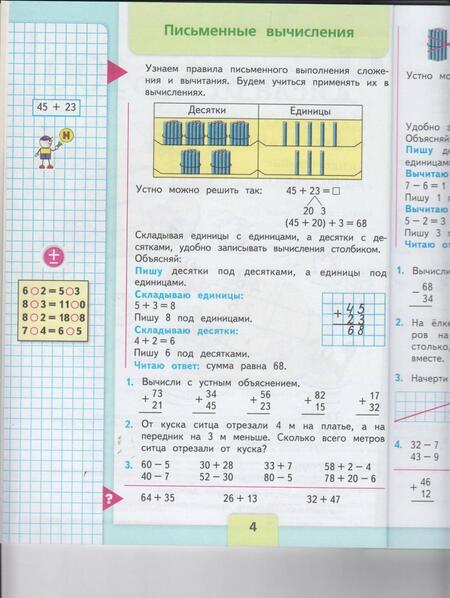 Письменные вычисления
Узнаем правила письменного выполнения сложе-
ния и вычитания. Будем учиться применять их в
вычислениях.
45 + 23
Десятки Единицы
Устно можно решить так: 45 + 23 = □
20 3
(45 + 20) + 3 = 68
Складывая единицы с единицами, а десятки с де-
сятками, удобно записывать вычисления столбиком.
Объясняй:
Пишу десятки под десятками, а единицы под
единицами.
Складываю единицы:
5 + 3 = 8
Пишу 8 под единицами.
Складываю десятки:
4 + 2 = 6
Пишу 6 под десятками.
Читаю ответ: сумма равна 68.
+ 45
23
68
±
6○2=5○3
8○3=11○0
8○2=18○8
7○4=6○5
1. Вычисли с устным объяснением.
+ 73 + 34 + 56 + 82 + 17
21 45 23 15 32
2. От куска ситца отрезали 4 м на платье, а на
передник на 3 м меньше. Сколько всего метров
ситца отрезали от куска?
3. 60 − 5 30 + 28 33 + 7 58 + 2 − 4
40 − 7 52 − 30 80 − 5 78 + 20 − 6
? 64 + 35 26 + 13 32 + 47
4
Устно мо
Удобно з
Объясняй
Пишу де
единицам
Вычитаю
7 − 6 = 1
Пишу 1 п
Вычитаю
5 − 2 = 3
Пишу 3 п
Читаю от
1. Вычисли
− 68
34
2. На ёлк
ров на
столько,
вместе.
3. Начерти
4. 32 − 7
43 − 9
+ 46
12